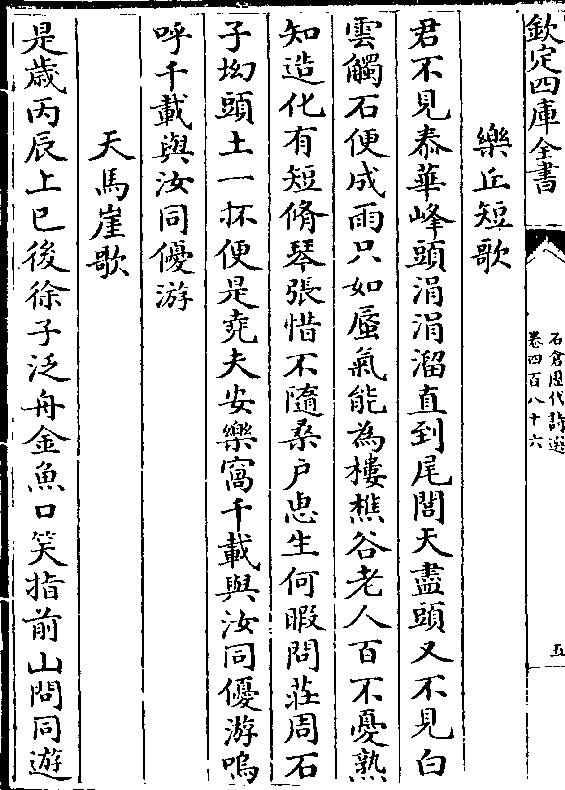 欽定四庫全書
石倉歴代詩選
卷四百八十六
五
樂丘短歌
君不見泰華峰頭涓涓溜直到尾閭天盡頭又不見白
雲觸石便成雨只如蜃氣能為樓樵谷老人百不憂熟
知造化有短脩琴張惜不隨桑戶患生何暇問莊周石
子坳頭土一抔便是堯夫安樂窩千載與汝同優游嗚
呼千載與汝同優游
天馬崖歌
是歲丙辰上巳後徐子泛舟金魚口笑指前山問同遊